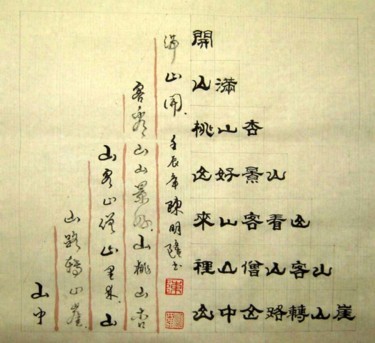 開
山滿
桃山杏
山好景山
來山客看山
裡山僧山客山
山中山路轉山崖
山中
山路轉山崖
山客山僧山里来山
客看山山景好山桃山杏
滿山開 壬辰年陳明書